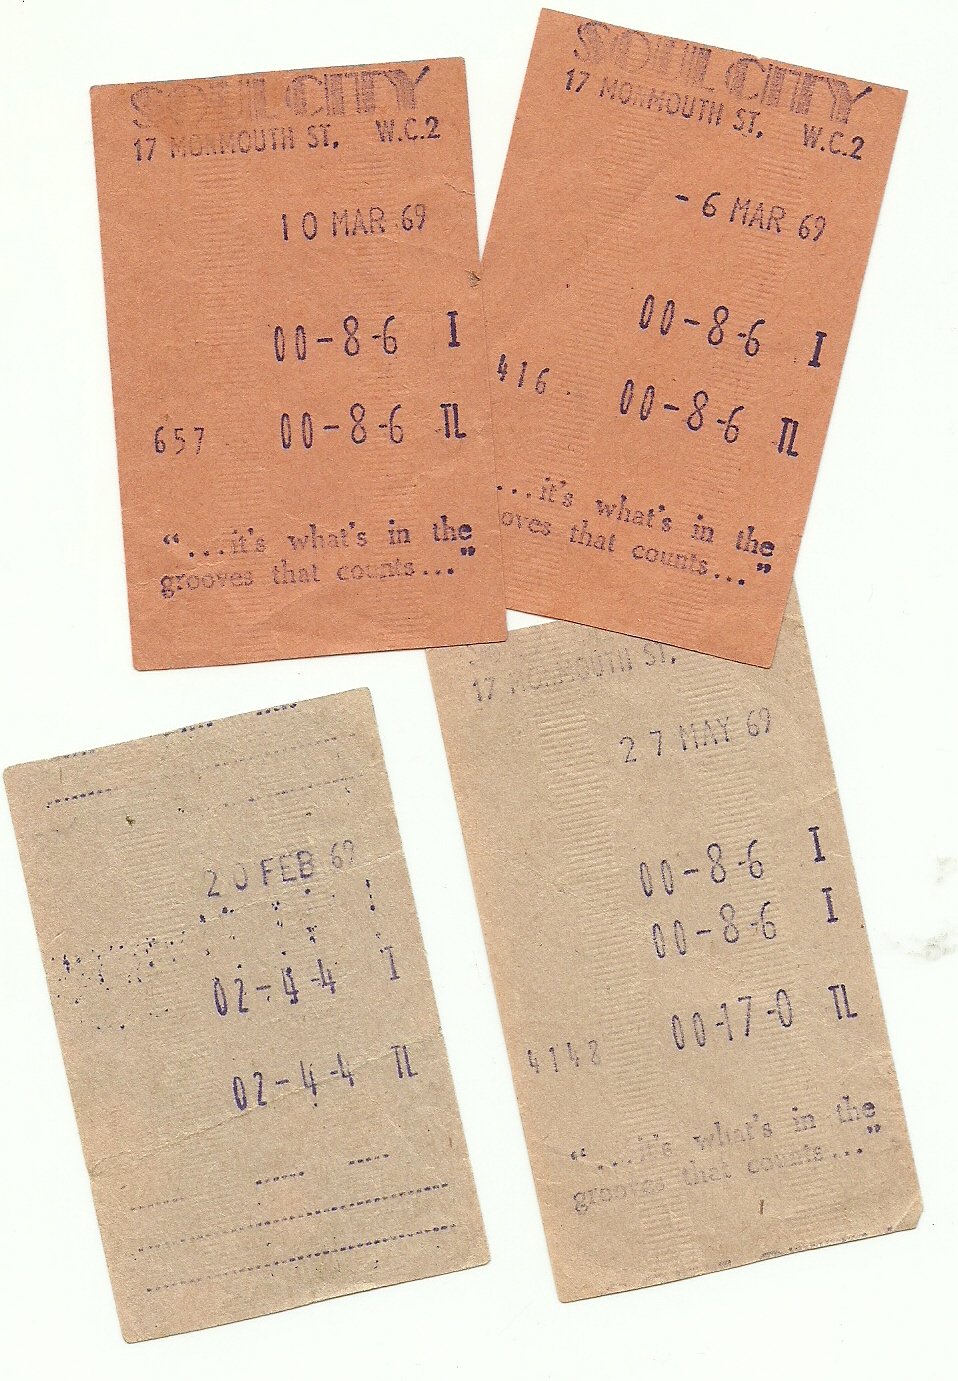 SOUL CITY
17 MONMOUTH ST. W.C.2
10 MAR 69
00-8-6 I
657 00-8-6 TL
"...it's what's in the
grooves that counts..."
SOUL CITY
17 MONMOUTH ST. W.C.2
-6 MAR 69
00-8-6 I
416 00-8-6 TL
...it's what's in the
oves that counts..."
20 FEB 69
02-4-4 I
02-4-4 TL
17 MONMOUTH ST.
27 MAY 69
00-8-6 I
00-8-6 I
4148 00-17-0 TL
"...it's what's in the
grooves that counts..."